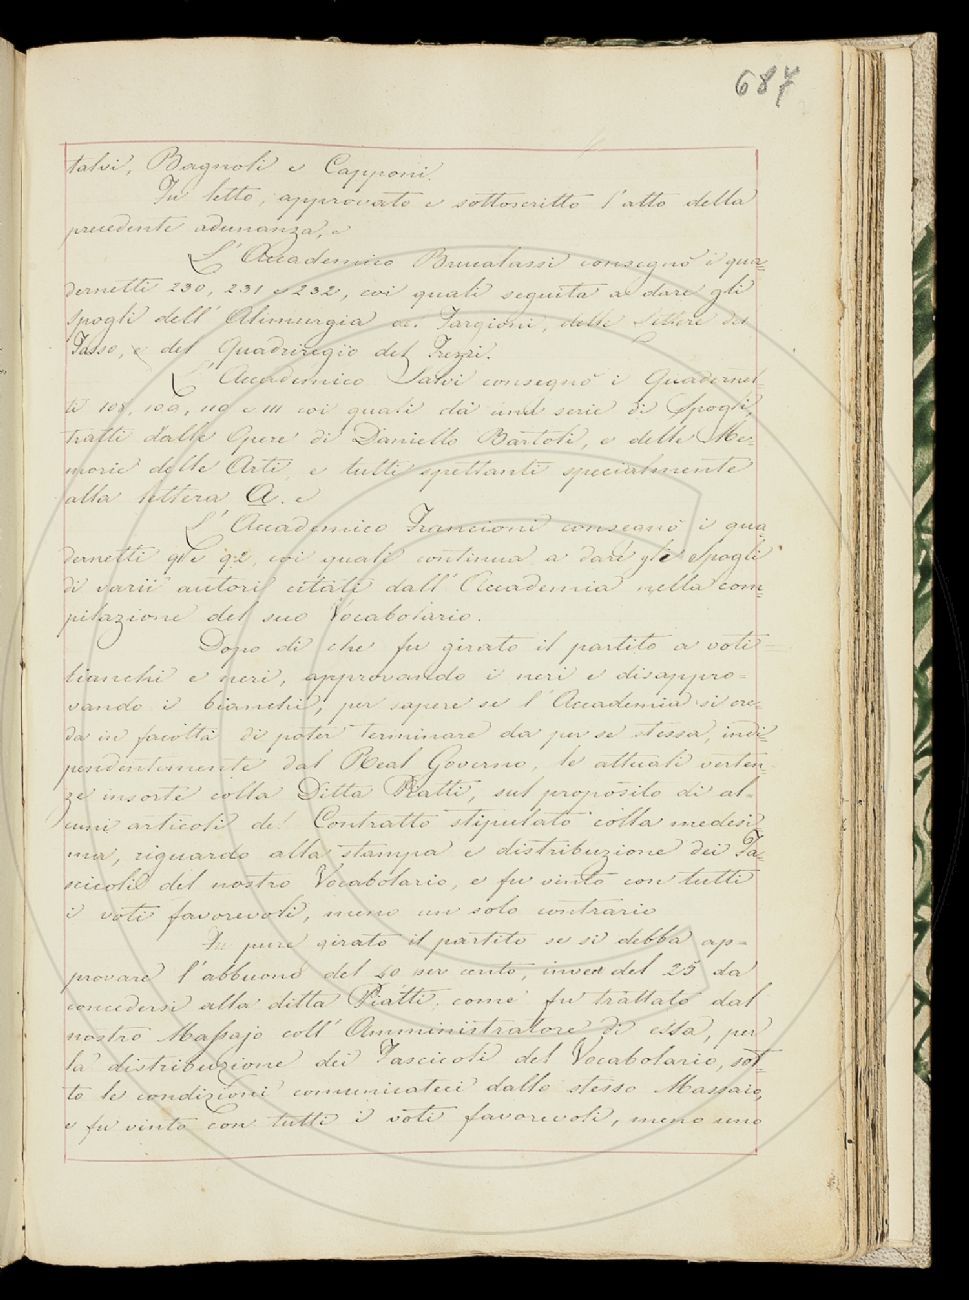 687
talvi, Bagnoli e Capponi.
Fu letto, approvato e sottoscritto l'atto della
precedente adunanza, e
L'Accademico Brucalassi consegnò i qua-
dernetti 230, 231 e 232, coi quali seguita a dare gli
Spogli dell'Alimurgia del Targioni, delle Lettere del
Tasso, e del Quadriregio del Frezzi.
L'Accademico Salvi consegnò i Quadernet-
ti 108, 109, 110 e 111 coi quali dà una serie di Spogli,
tratti dalle Opere di Daniello Bartoli, e delle Me-
morie delle Arti, e tutti spettanti specialmente
alla lettera A. e
L'Accademico Francioni consegnò i qua
dernetti 91 e 92, coi quali continua a dare gli Spogli
di varii autori citati dall'Accademia nella com-
pilazione del suo Vocabolario.
Dopo di che fu girato il partito a voti
bianchi e neri, approvando i neri e disappro-
vando i bianchi, per sapere se l'Accademia si cre-
da in facoltà di poter terminare da per se stessa, indi-
pendentemente dal Real Governo, le attuali verten-
ze insorte colla Ditta Piatti, sul proposito di al-
cuni articoli del Contratto stipulato colla medesi
ma, riguardo alla stampa e distribuzione dei Fa-
scicoli del nostro Vocabolario, e fu vinto con tutti
i voti favorevoli, meno un solo contrario
Fu pure girato il partito se si debba ap-
provare l'abbuono del 40 per cento, invece del 25 da
concedersi alla ditta Piatti, come fu trattato dal
nostro Massajo coll'Amministratore di essa, per
la distribuzione dei Fascicoli del Vocabolario, sot-
to le condizioni comunicateci dallo stesso Massaio,
e fu vinto con tutti i voti favorevoli, meno uno